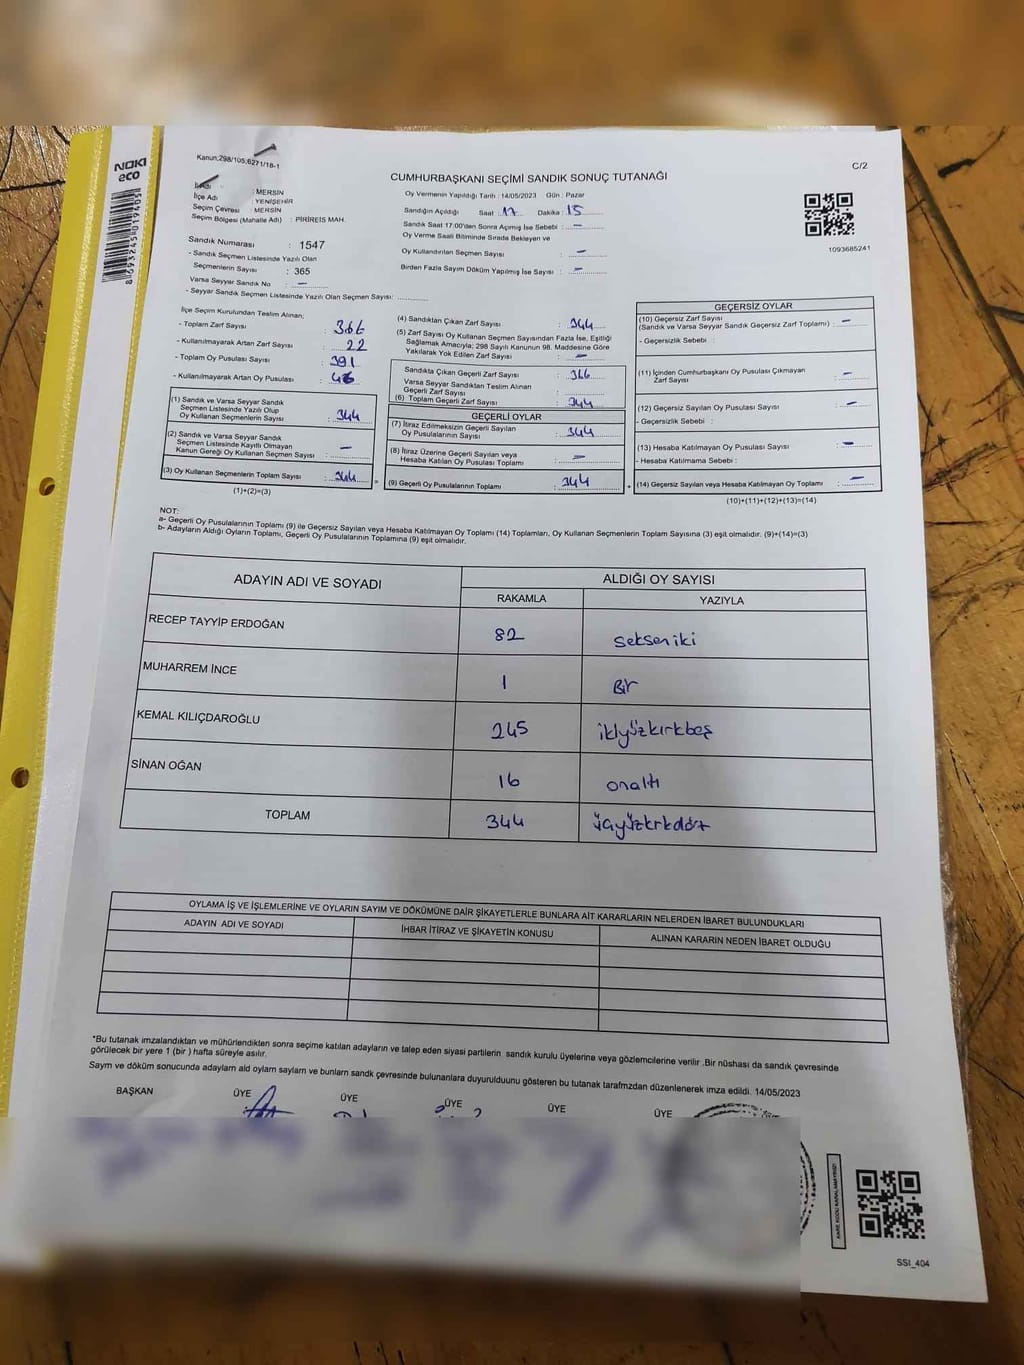 NOKI
eco
8693245019405
Kanun;298/105,6271/18-1
C/2
CUMHURBAŞKANI SEÇİMİ SANDIK SONUÇ TUTANAĞI
İl Adı : MERSİN
İlçe Adı : YENİŞEHİR
Seçim Çevresi : MERSİN
Seçim Bölgesi (Mahalle Adı) : PİRİREİS MAH.
Sandık Numarası : 1547
- Sandık Seçmen Listesinde Yazılı Olan
Seçmenlerin Sayısı : 365
Varsa Seyyar Sandık No : —
- Seyyar Seçmen Listesinde Yazılı Olan Seçmen Sayısı: ............
Oy Vermenin Yapıldığı Tarih : 14/05/2023 Gün : Pazar
Sandığın Açıldığı Saat : 17 Dakika : 15
Sandık Saat 17:00'den Sonra Açımış İse Sebebi : —
Oy Verme Saati Bitiminde Sırada Bekleyen ve
Oy Kullandırılan Seçmen Sayısı : —
Birden Fazla Sayım Döküm Yapılmış İse Sayısı : —
1093685241
İlçe Seçim Kurulundan Teslim Alınan;
- Toplam Zarf Sayısı : 366
- Kullanılmayarak Artan Zarf Sayısı : 22
- Toplam Oy Pusulası Sayısı : 391
- Kullanılmayarak Artan Oy Pusulası :
(1) Sandık ve Varsa Seyyar Sandık
Seçmen Listesinde Yazılı Olup
Oy Kullanan Seçmenlerin Sayısı : 344
(2) Sandık ve Varsa Seyyar Sandık
Seçmen Listesinde Kayıtlı Olmayan
Kanun Gereği Oy Kullanan Seçmen Sayısı : —
(3) Oy Kullanan Seçmenlerin Toplam Sayısı : 344
(1)+(2)=(3)
(4) Sandıktan Çıkan Zarf Sayısı : 344
(5) Zarf Sayısı Oy Kullanan Seçmen Sayısından Fazla İse, Eşitliği
Sağlamak Amacıyla; 298 Sayılı Kanunun 98. Maddesine Göre
Yakılarak Yok Edilen Zarf Sayısı : —
Sandıkta Çıkan Geçerli Zarf Sayısı : 366
Varsa Seyyar Sandıktan Teslim Alınan
Geçerli Zarf Sayısı :
(6) Toplam Geçerli Zarf Sayısı : 344
GEÇERLİ OYLAR
(7) İtiraz Edilmeksizin Geçerli Sayılan
Oy Pusulalarının Sayısı : 344
(8) İtiraz Üzerine Geçerli Sayılan veya
Hesaba Katılan Oy Pusulası Toplamı : —
(9) Geçerli Oy Pusulalarının Toplamı : 344
GEÇERSİZ OYLAR
(10) Geçersiz Zarf Sayısı
(Sandık ve Varsa Seyyar Sandık Geçersiz Zarf Toplamı) : —
- Geçersizlik Sebebi :
(11) İçinden Cumhurbaşkanı Oy Pusulası Çıkmayan
Zarf Sayısı : —
(12) Geçersiz Sayılan Oy Pusulası Sayısı : —
- Geçersizlik Sebebi :
(13) Hesaba Katılmayan Oy Pusulası Sayısı : —
- Hesaba Katılmama Sebebi :
(14) Geçersiz Sayılan veya Hesaba Katılmayan Oy Toplamı : —
(10)+(11)+(12)+(13)=(14)
NOT:
a- Geçerli Oy Pusulalarının Toplamı (9) ile Geçersiz Sayılan veya Hesaba Katılmayan Oy Toplamı (14) Toplamları, Oy Kullanan Seçmenlerin Toplam Sayısına (3) eşit olmalıdır. (9)+(14)=(3)
b- Adayların Aldığı Oyların Toplamı, Geçerli Oy Pusulalarının Toplamına (9) eşit olmalıdır.
ADAYIN ADI VE SOYADI ALDIĞI OY SAYISI
RAKAMLA YAZIYLA
RECEP TAYYİP ERDOĞAN 82 sekseniki
MUHARREM İNCE 1 Bir
KEMAL KILIÇDAROĞLU 245 ikiyüzkırkbeş
SİNAN OĞAN 16 onaltı
TOPLAM 344 üçyüzkırkdört
OYLAMA İŞ VE İŞLEMLERİNE VE OYLARIN SAYIM VE DÖKÜMÜNE DAİR ŞİKAYETLERLE BUNLARA AİT KARARLARIN NELERDEN İBARET BULUNDUKLARI
ADAYIN ADI VE SOYADI İHBAR İTİRAZ VE ŞİKAYETİN KONUSU ALINAN KARARIN NEDEN İBARET OLDUĞU
*Bu tutanak imzalandıktan ve mühürlendikten sonra seçime katılan adayların ve talep eden siyasi partilerin sandık kurulu üyelerine veya gözlemcilerine verilir .Bir nüshası da sandık çevresinde
görülecek bir yere 1 (bir ) hafta süreyle asılır.
Saym ve döküm sonucunda adaylarn ald oylarn saylarn ve bunlarn sandk çevresinde bulunanlara duyurulduunu gösteren bu tutanak tarafmzdan düzenlenerek imza edildi. 14/05/2023
BAŞKAN ÜYE ÜYE ÜYE ÜYE ÜYE
KARE KODU KARALAMAYINIZ!
SSI_404